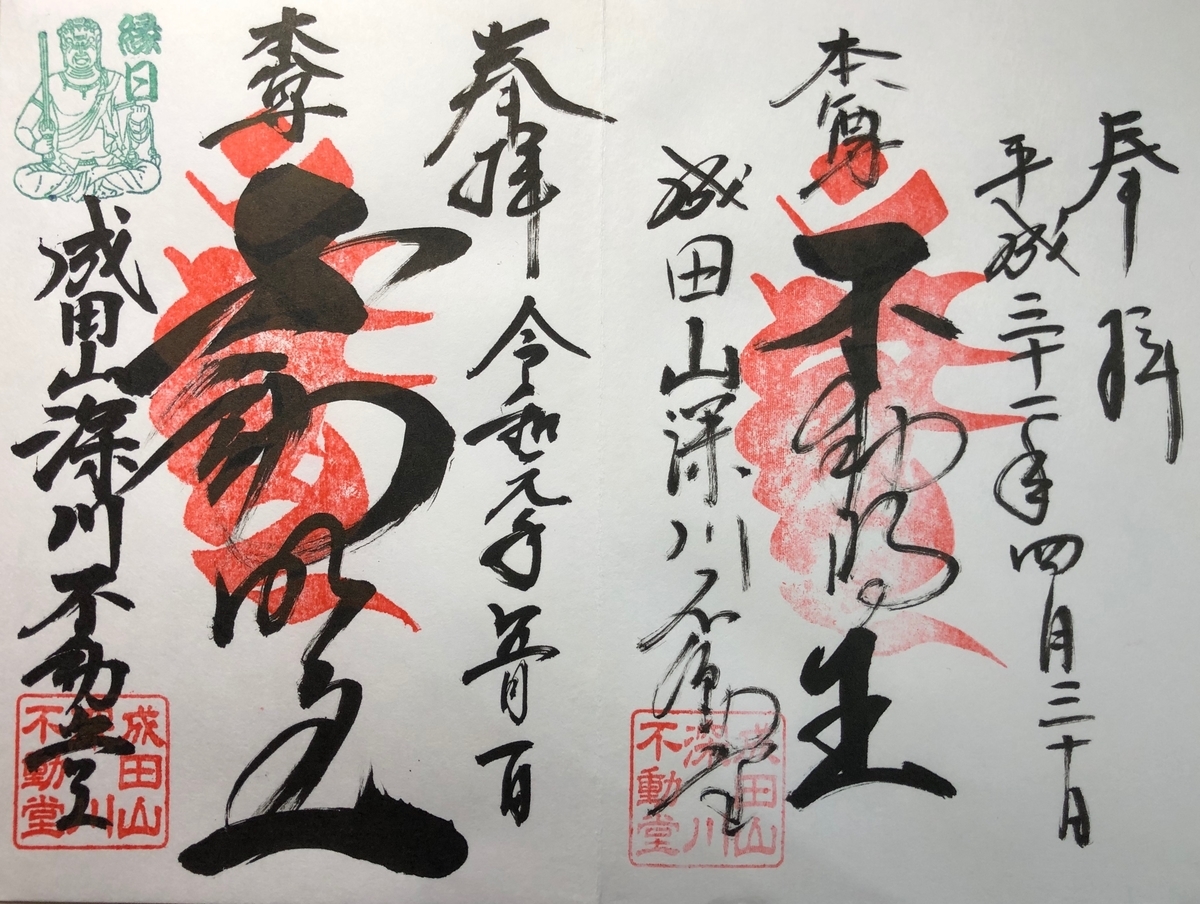 奉拝
平成三十一年四月三十日
本尊
不動明王
成田山深川不動堂
成田山
深川
不動堂
奉拝
令和元年五月一日
本尊
不動明王
縁日
成田山深川不動堂
成田山
深川
不動堂